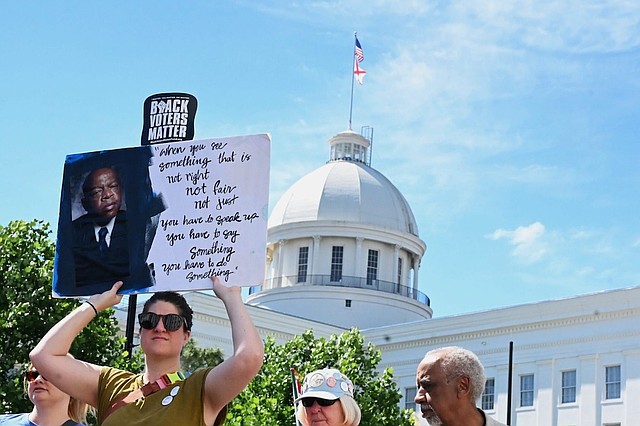 BLACK
VOTERS
MATTER
"When you see
something that is
not right
not fair
not just
you have to speak up
you have to say
Something
you have to do
something"